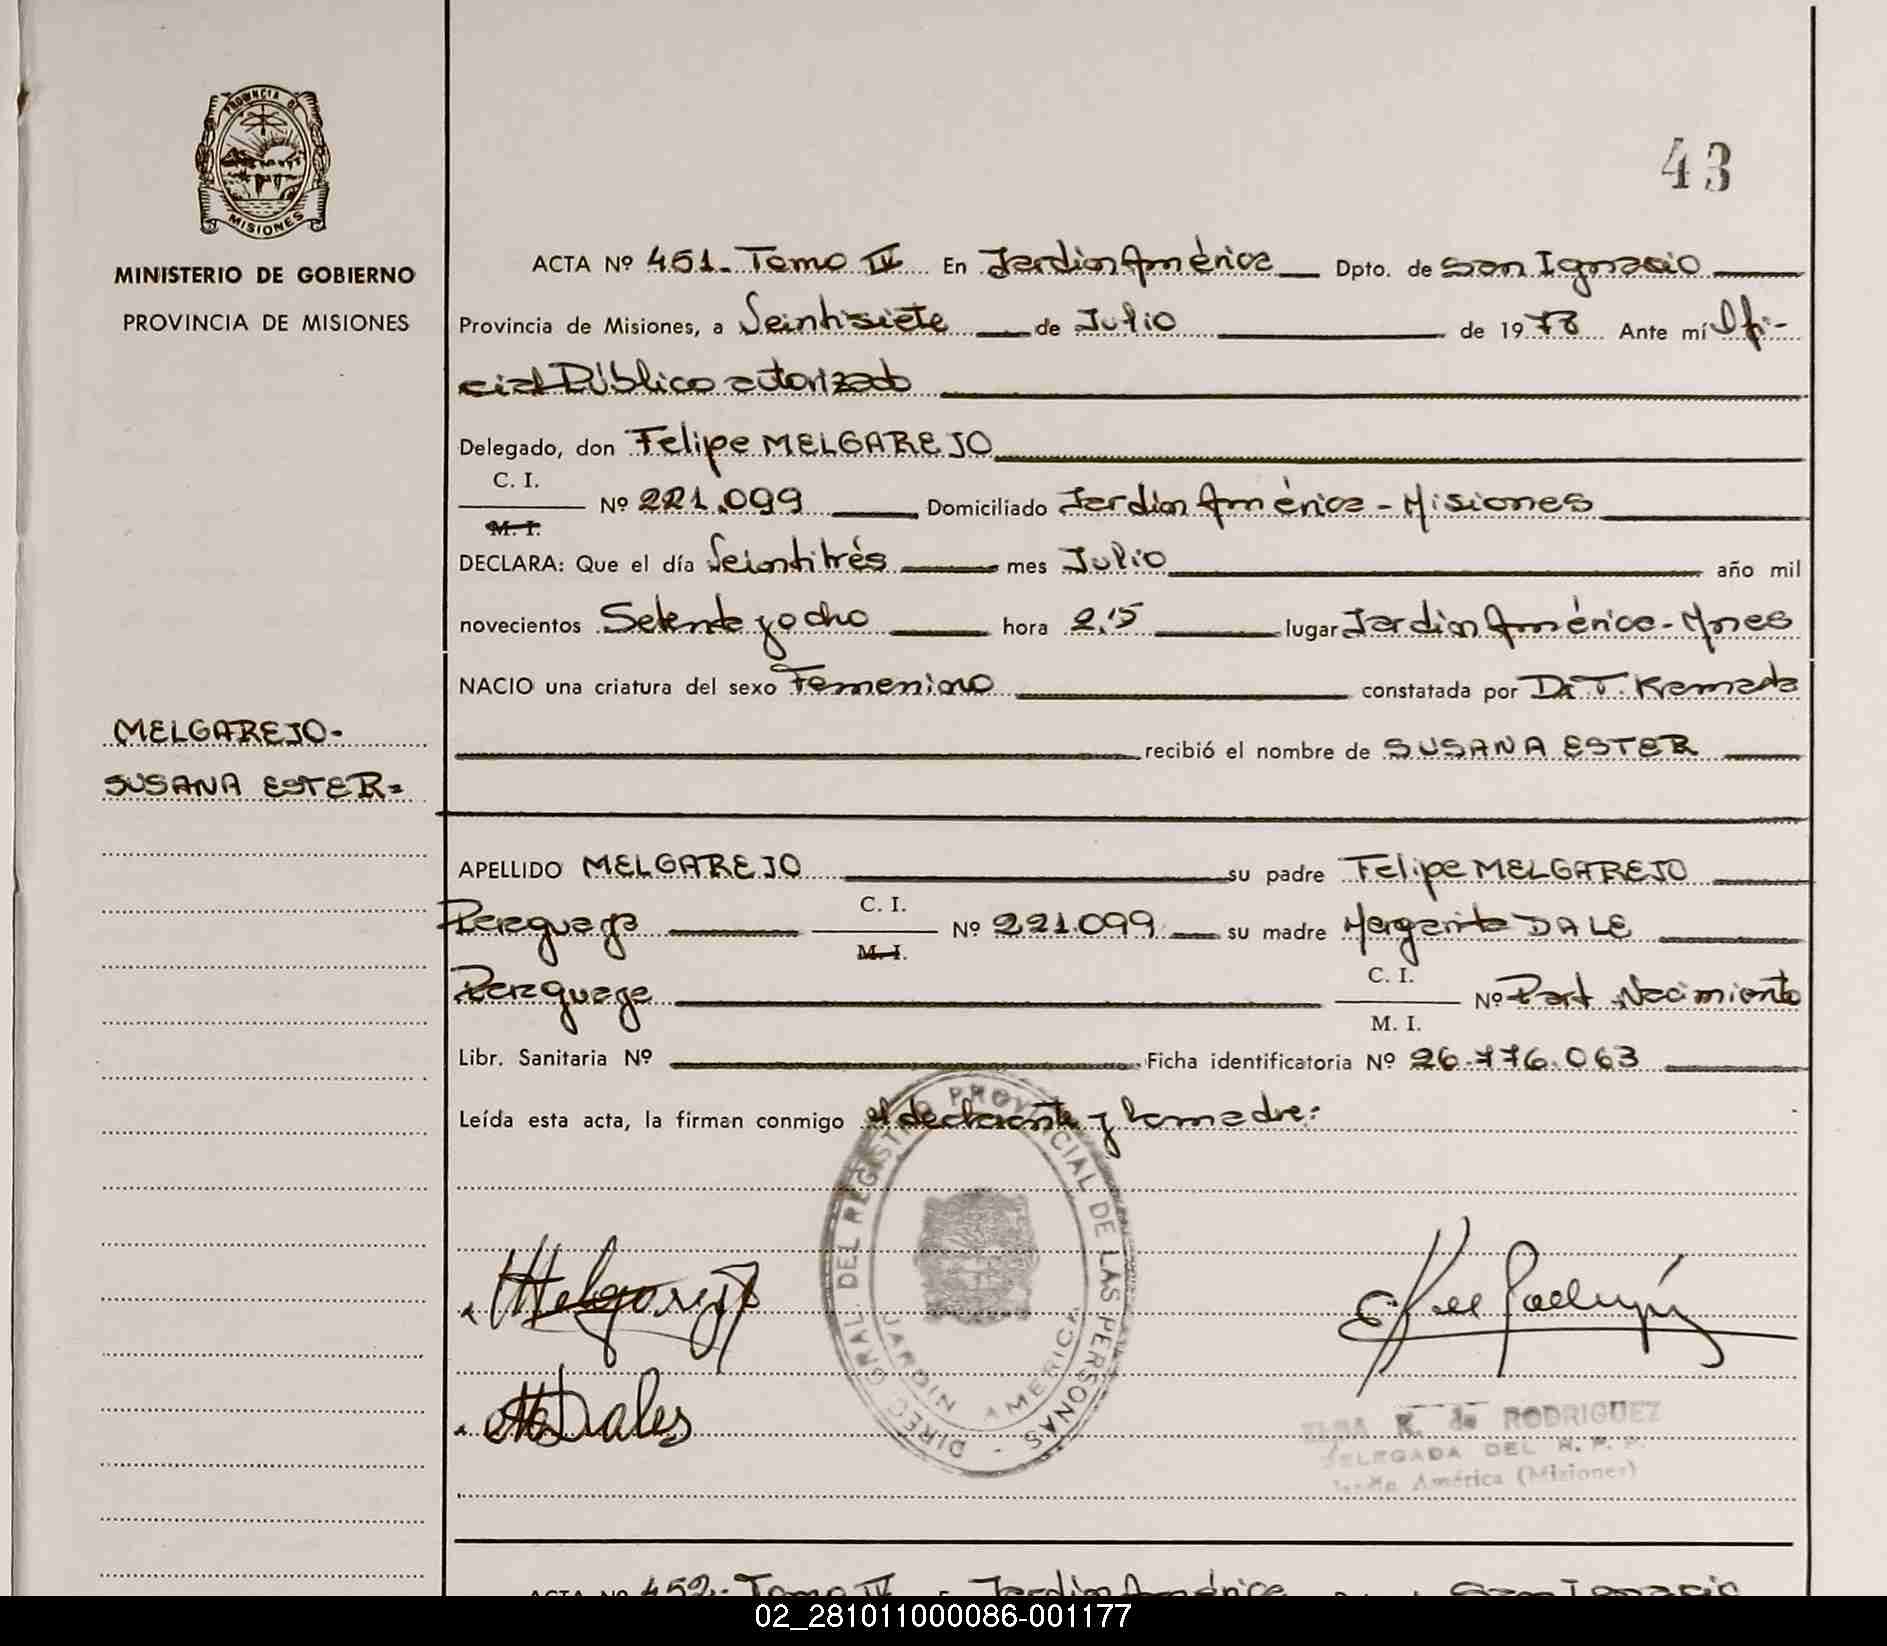 43
PROVINCIA DE
MISIONES
MINISTERIO DE GOBIERNO
PROVINCIA DE MISIONES
ACTA Nº 451. Tomo IV En Jardín América Dpto. de San Ignacio
Provincia de Misiones, a Veintisiete de Julio de 1978 Ante mí Ofi-
cial Público autorizado
Delegado, don Felipe MELGAREJO
C. I.
Nº 221.099 Domiciliado Jardín América - Misiones
M. I.
DECLARA: Que el día Veintitrés mes Julio año mil
novecientos Setenta y ocho hora 2,15 lugar Jardín América - Mnes
NACIO una criatura del sexo Femenino constatada por Dr. T. Kramada
MELGAREJO-
recibió el nombre de SUSANA ESTER
SUSANA ESTER=
APELLIDO MELGAREJO su padre Felipe MELGAREJO
C. I.
Paraguayo Nº 221.099 su madre Margarita DALE
M. I.
C. I.
Paraguaya Nº Part. Nacimiento
M. I.
Libr. Sanitaria Nº Ficha identificatoria Nº 26.776.063
Leída esta acta, la firman conmigo el declarante y la madre:
DIREC. GRAL. DEL REGISTRO PROVINCIAL DE LAS PERSONAS -
JARDIN AMERICA
Melgarejo
M Dales
ELBA K. de RODRIGUEZ
DELEGADA DEL R. P. P.
Jardín América (Misiones)
ACTA Nº 452. Tomo IV E Jardín América San Ignacio
02_281011000086-001177